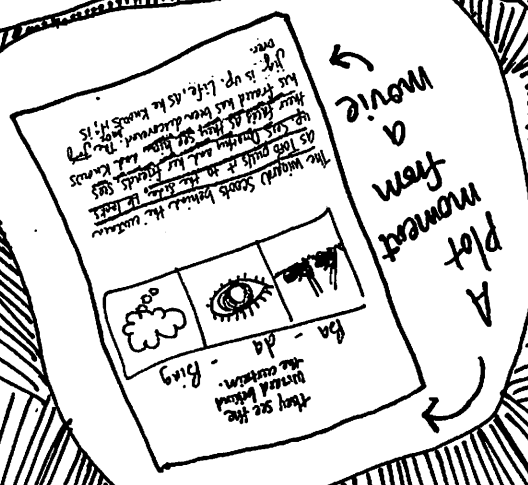 A
plot
moment
from
a
movie
They see the
wizard behind
the curtain.
Ba - da - Bing
The wizard scoots behind the curtain
as Toto pulls it to the side. He looks
up, sees Dorothy and her friends, sees
their faces as they see him and knows
his fraud has been discovered. The
jig is up. Life, as he knows it, is
over.